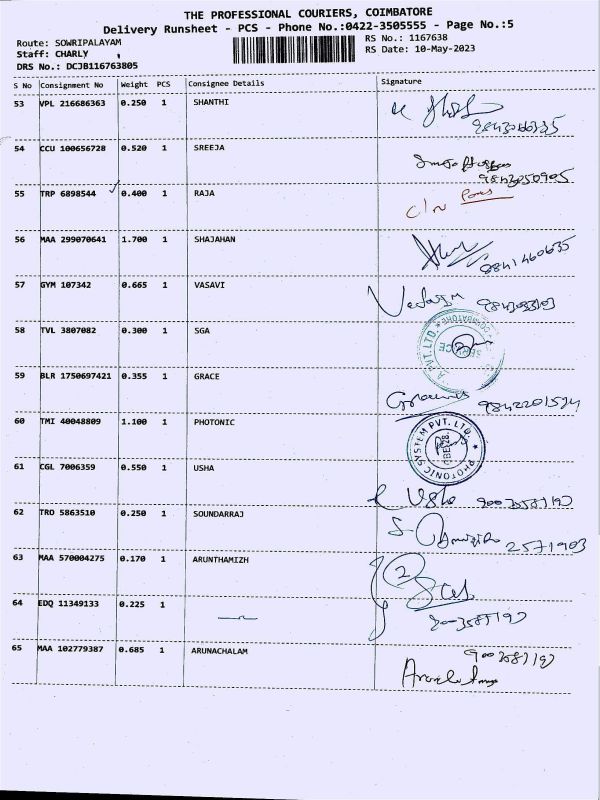 THE PROFESSIONAL COURIERS, COIMBATORE
Delivery Runsheet - PCS - Phone No.:0422-3505555 - Page No.:5
Route: SOWRIPALAYAM
RS No.: 1167638
Staff: CHARLY
RS Date: 10-May-2023
DRS No.: DCJB116763805
S No Consignment No Weight PCS Consignee Details Signature
53 VPL 216686363 0.250 1 SHANTHI
54 CCU 100656728 0.520 1 SREEJA
9843050905
55 TRP 6898544 0.400 1 RAJA
56 MAA 299070641 1.700 1 SHAJAHAN
9841460635
57 GYM 107342 0.665 1 VASAVI
58 TVL 3807082 0.300 1 SGA
PVT. LTD. COIMBATORE
SERVICE
59 BLR 1750697421 0.355 1 GRACE
60 TMI 40048809 1.100 1 PHOTONIC
PHOTONIC SYSTEM PVT. LTD.
61 CGL 7006359 0.550 1 USHA
Usha
62 TRO 5863510 0.250 1 SOUNDARRAJ
2571903
63 MAA 570004275 0.170 1 ARUNTHAMIZH
2
64 EDQ 11349133 0.225 1
65 MAA 102779387 0.685 1 ARUNACHALAM